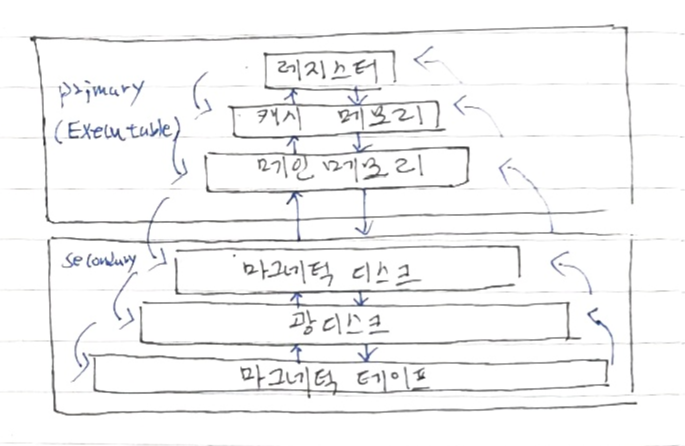 레지스터
primary
(Executable)
캐시 메모리
메인 메모리
secondary
마그네틱 디스크
광디스크
마그네틱 테이프